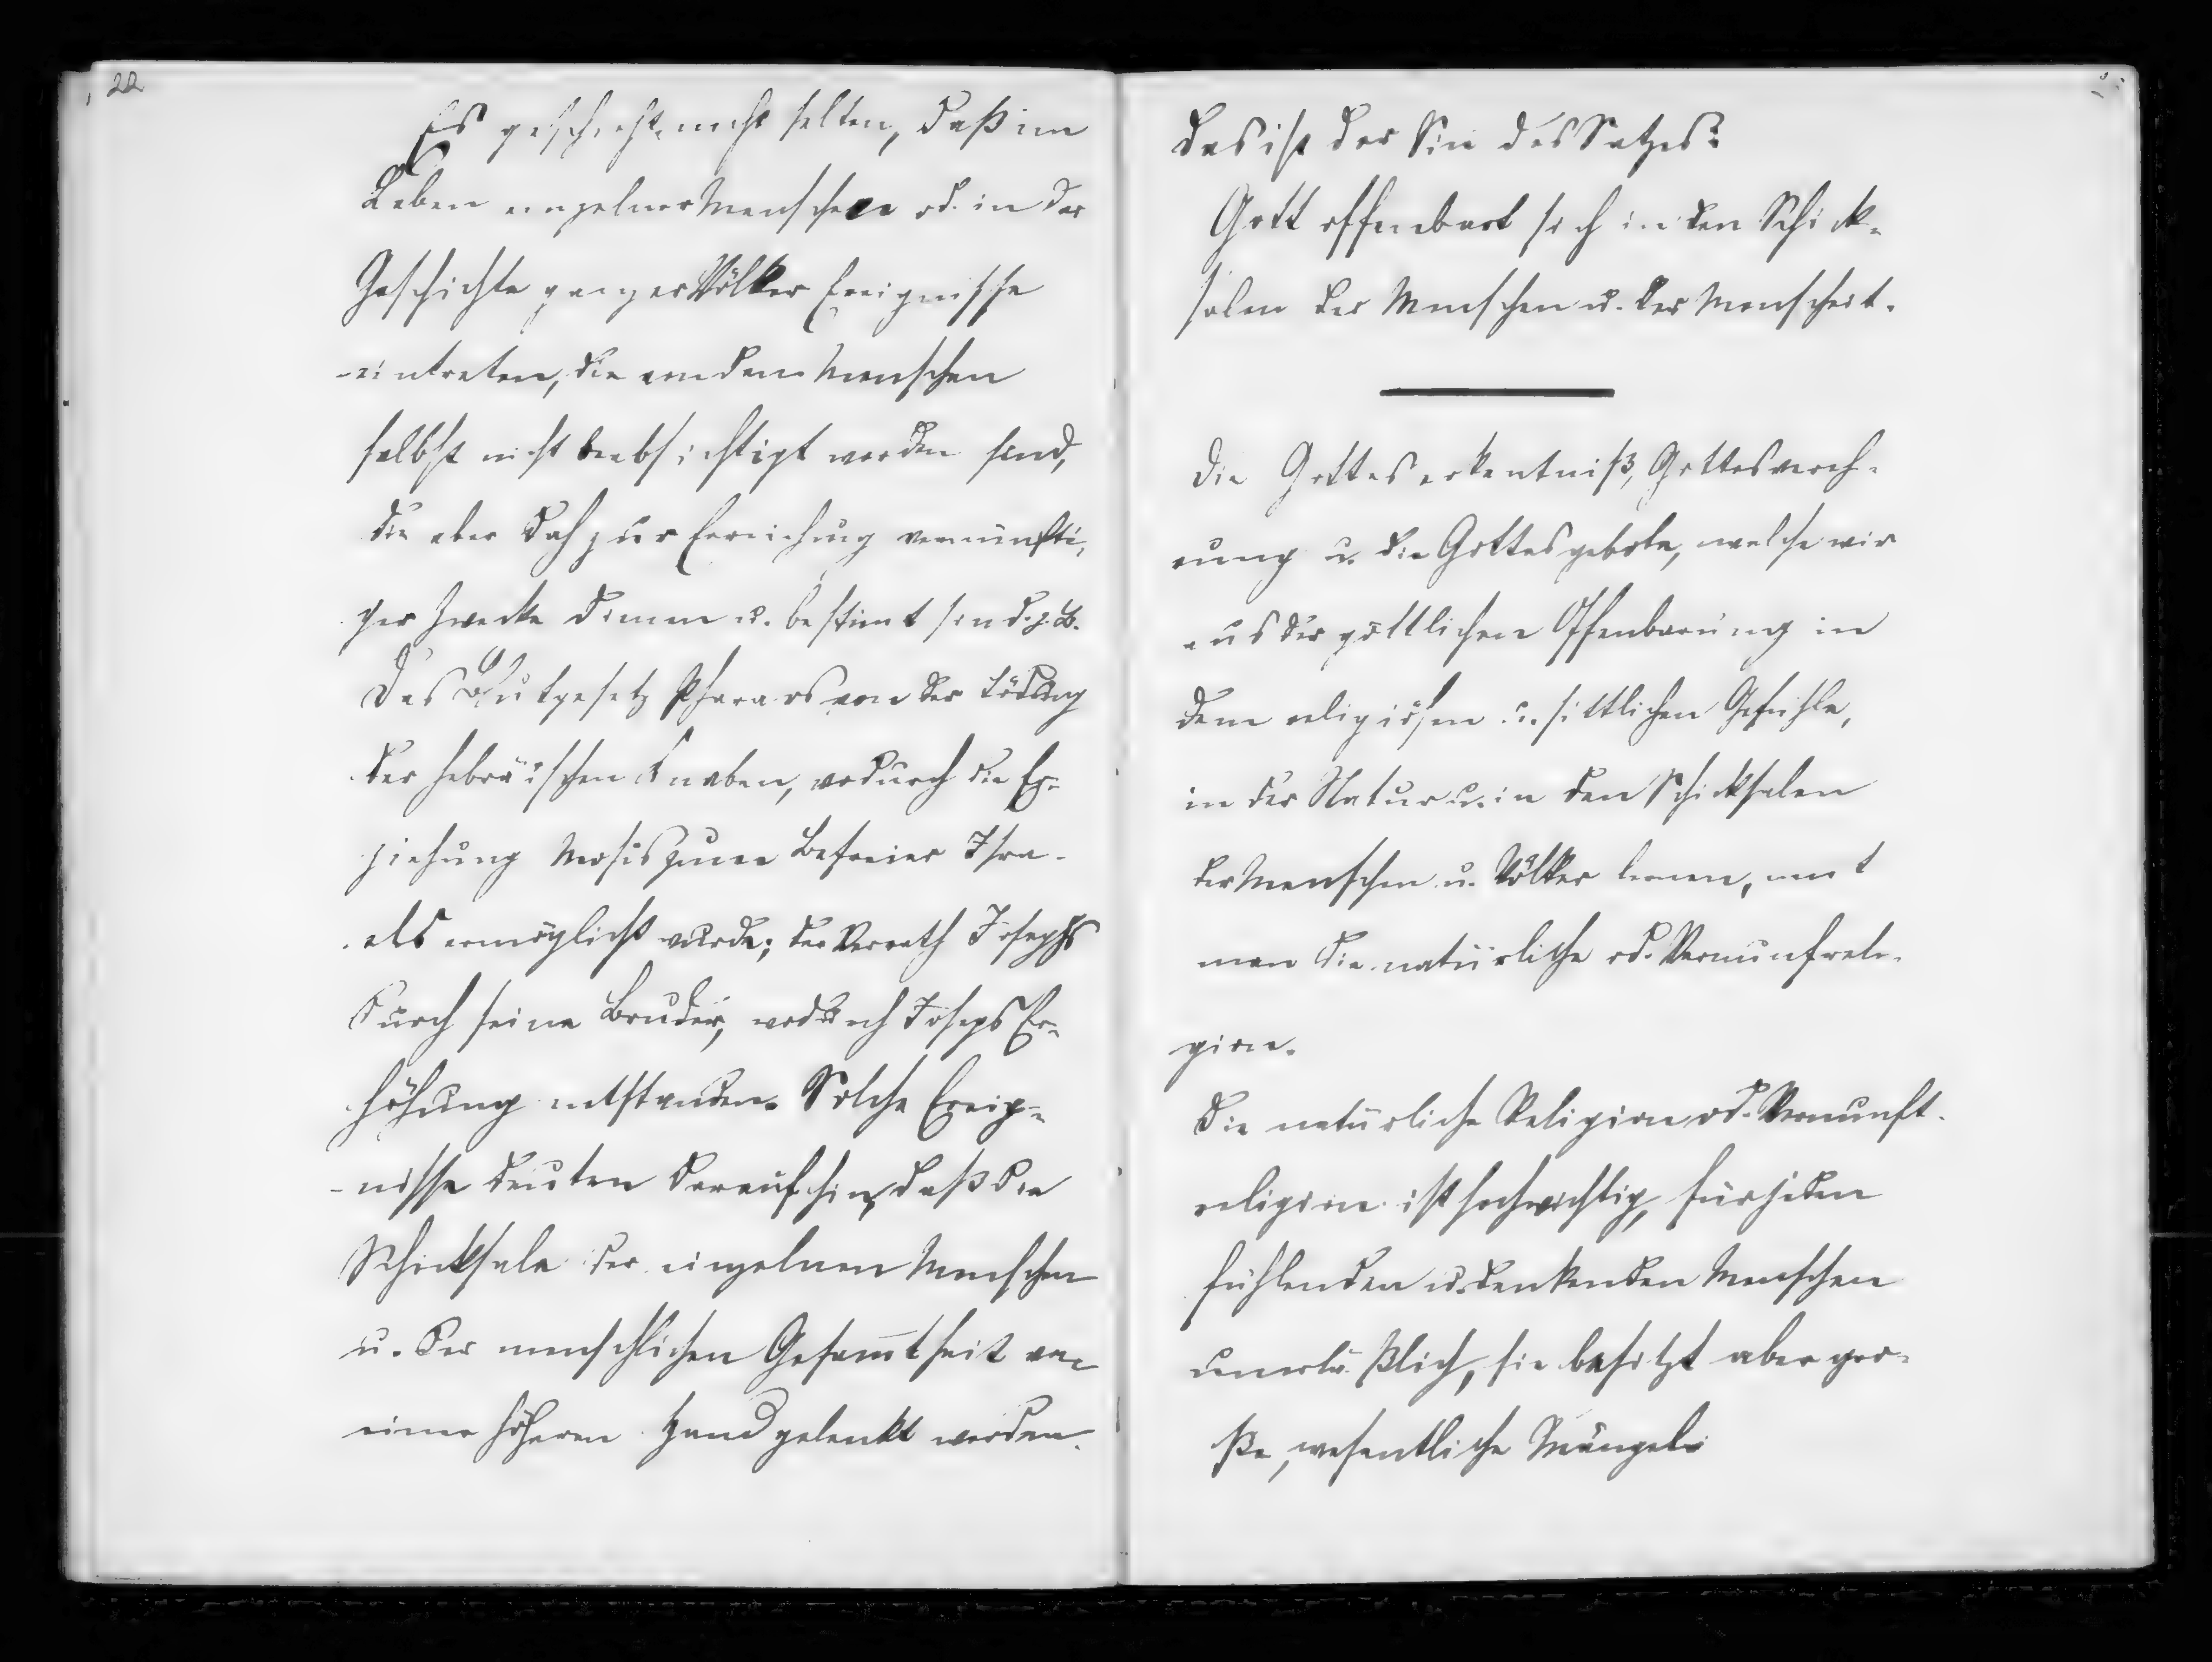 22
Es geschieht nicht selten, daß im
Leben einzelner Menschen od. in der
Geschichte ganzer Völker Ereignisse
eintreten, die von den Menschen
selbst nicht beabsichtigt worden sind,
die aber doch zur Erreichung vernünfti-
ger Zwecke dienen u. bestimt sind. z. B.
Das Blutgesetz Pharaos von der Tödtung
der hebräischen Knaben, wodurch die Er-
ziehung Mosis zum Befreier Isra-
els ermöglicht wurde; der Verrath Josephs
durch seine Brüder, wodurch Josephs Er-
höhung entstanden. Solche Ereig-
nisse deuten darauf hin, daß die
Schicksale der einzelnen Menschen
u. der menschlichen Gesam̄theit von
einer höheren Hand gelenkt werden.
Das ist der Sin des Satzes:
Gott offenbart sich in den Schick-
salen der Menschen u. der Menscheit.
Die Gotteserkentniß, Gottesvereh-
rung u. die Gottesgebote, welche wir
aus der göttlichen Offenbarung in
dem religiösen u. sittlichen Gefühle,
in der Natur u. in den Schicksalen
der Menschen u. Völker lernen, nent
man die natürliche od. Vernunfreli-
gion.
Die natürliche Religion od. Vernunft-
religion ist hochwichtig, für jeden
fühlenden u. denkenden Menschen
unerläßlich, sie besitzt aber gro-
ße, wesentliche Mängel: